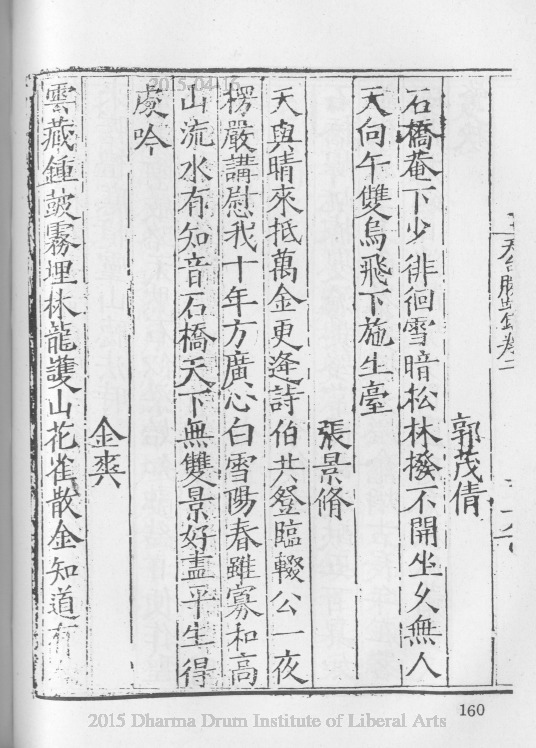 天台勝蹟錄卷二
郭茂倩
石橋菴下少徘徊雪暗松林撥不開坐久無人
天向午雙烏飛下施生臺
張景脩
天與晴來抵萬金更逢詩伯共登臨輟公一夜
楞嚴講慰我十年方廣心白雪陽春雖寡和高
山流水有知音石橋天下無雙景好盡平生得
處吟
金爽
雲藏鍾皷霧埋林龍護山花雀散金知道有
160
2015 Dharma Drum Institute of Liberal Arts